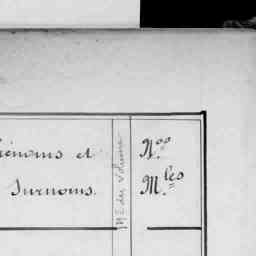 rénoms et
Surnoms.
N° du Volume
N.os
M.les